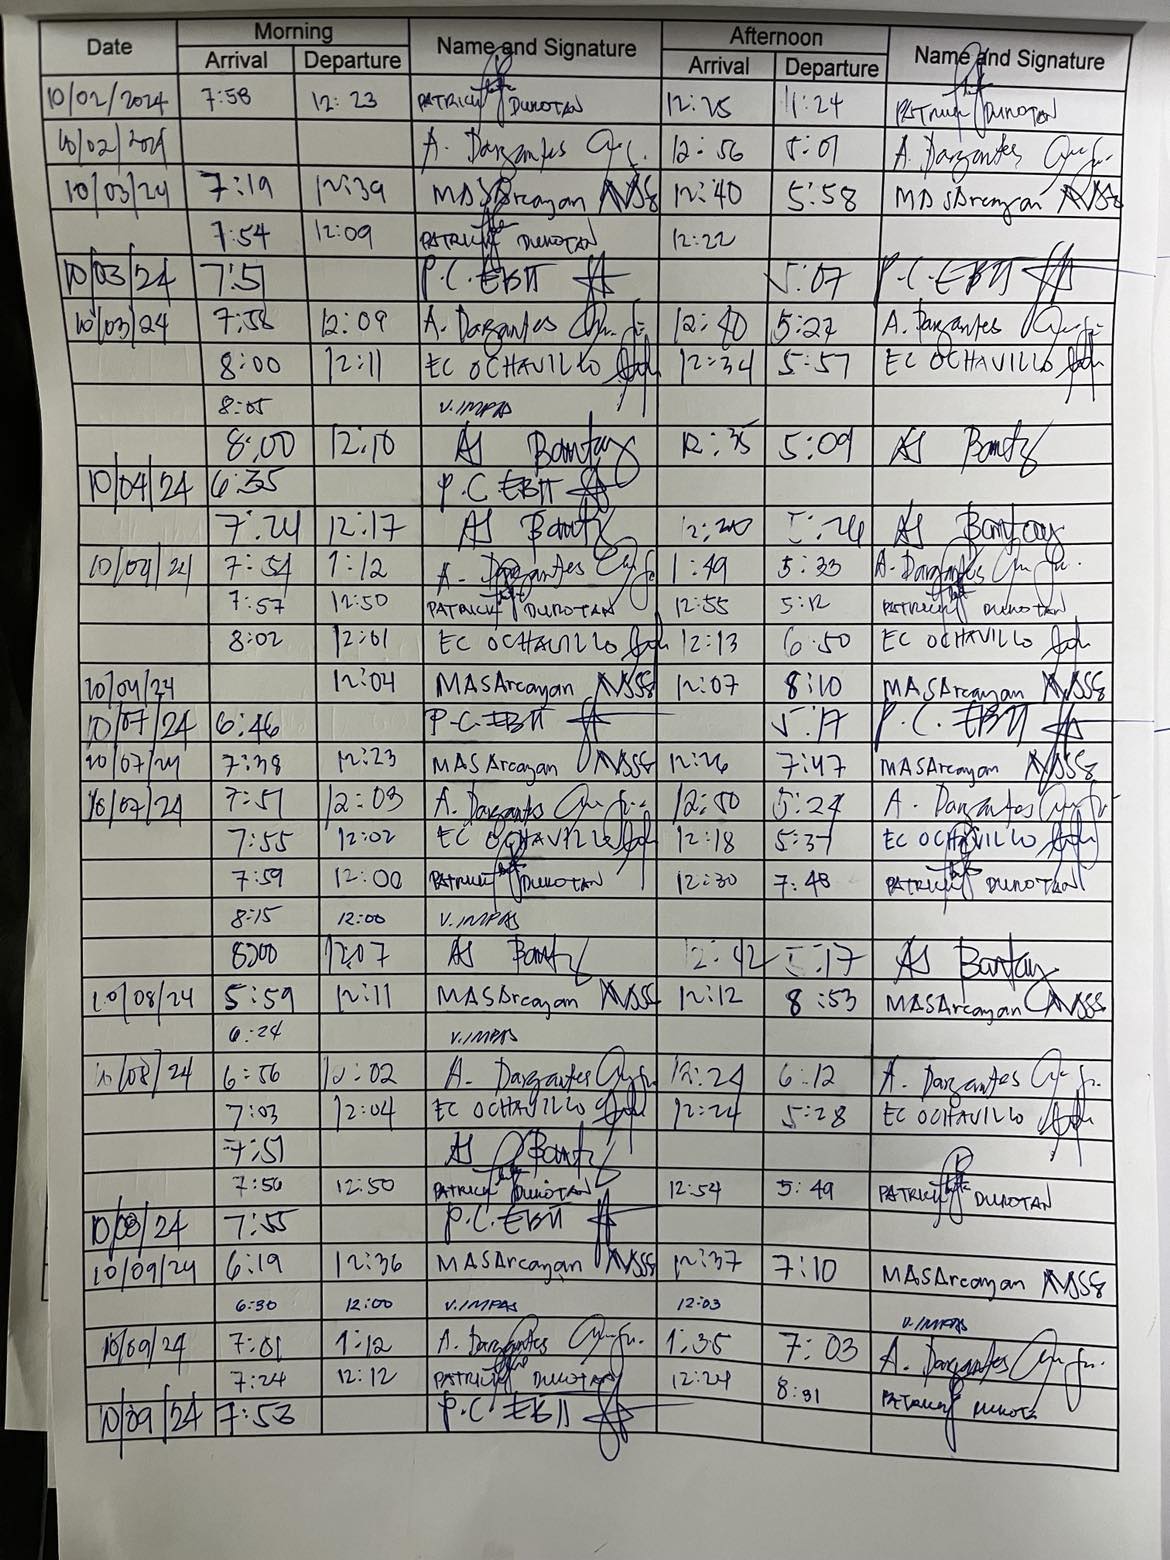 Date Morning Name and Signature Afternoon Name and Signature
Arrival Departure Arrival Departure
10/02/2024 7:58 12:23 PATRICK DUKOTAN 12:25 11:24 PATRICK DUKOTAN
10/02/2024 A. Dargantes 12:56 5:01 A. Dargantes
10/03/24 7:19 12:39 MASArcayan 12:40 5:58 MASArcayan
7:54 12:09 PATRICK DUKOTAN 12:22
10/03/24 7:51 P.C. EBII 5:07 P.C. EBII
10/03/24 7:58 12:09 A. Dargantes 12:40 5:27 A. Dargantes
8:00 12:11 EC OCHAVILLO 12:34 5:57 EC OCHAVILLO
8:05 V. IMPAS
8:00 12:10 AS Bantay 12:35 5:09 AS Bantay
10/04/24 6:35 P.C EBII
7:24 12:17 AS Bantay 12:20 5:26 AS Bantay
10/04/24 7:54 1:12 A. Dargantes 1:49 5:33 A. Dargantes
7:57 12:50 PATRICK DUKOTAN 12:55 5:12 PATRICK DUKOTAN
8:02 12:01 EC OCHAVILLO 12:13 6:50 EC OCHAVILLO
10/04/24 12:04 MASArcayan 12:07 8:10 MASArcayan
10/07/24 6:46 P.C. EBII 5:17 P.C. EBII
10/07/24 7:38 12:23 MASArcayan 12:26 7:47 MASArcayan
10/07/24 7:51 12:03 A. Dargantes 12:50 5:24 A. Dargantes
7:55 12:02 EC OCHAVILLO 12:18 5:37 EC OCHAVILLO
7:59 12:00 PATRICK DUKOTAN 12:30 7:48 PATRICK DUKOTAN
8:15 12:00 V. IMPAS
8:00 12:07 AS Bantay 12:42 5:17 AS Bantay
10/08/24 5:59 12:11 MASArcayan 12:12 8:53 MASArcayan
6:24 V. IMPAS
10/08/24 6:56 12:02 A. Dargantes 12:24 6:12 A. Dargantes
7:03 12:04 EC OCHAVILLO 12:24 5:28 EC OCHAVILLO
7:51 AS Bantay
7:56 12:50 PATRICK DUKOTAN 12:54 5:49 PATRICK DUKOTAN
10/08/24 7:55 P.C. EBII
10/09/24 6:19 12:36 MASArcayan 12:37 7:10 MASArcayan
6:30 12:00 V. IMPAS 12:03 V. IMPAS
10/09/24 7:01 1:12 A. Dargantes 1:35 7:03 A. Dargantes
7:24 12:12 PATRICK DUKOTAN 12:24 8:31 PATRICK DUKOTAN
10/09/24 7:53 P.C. EBII